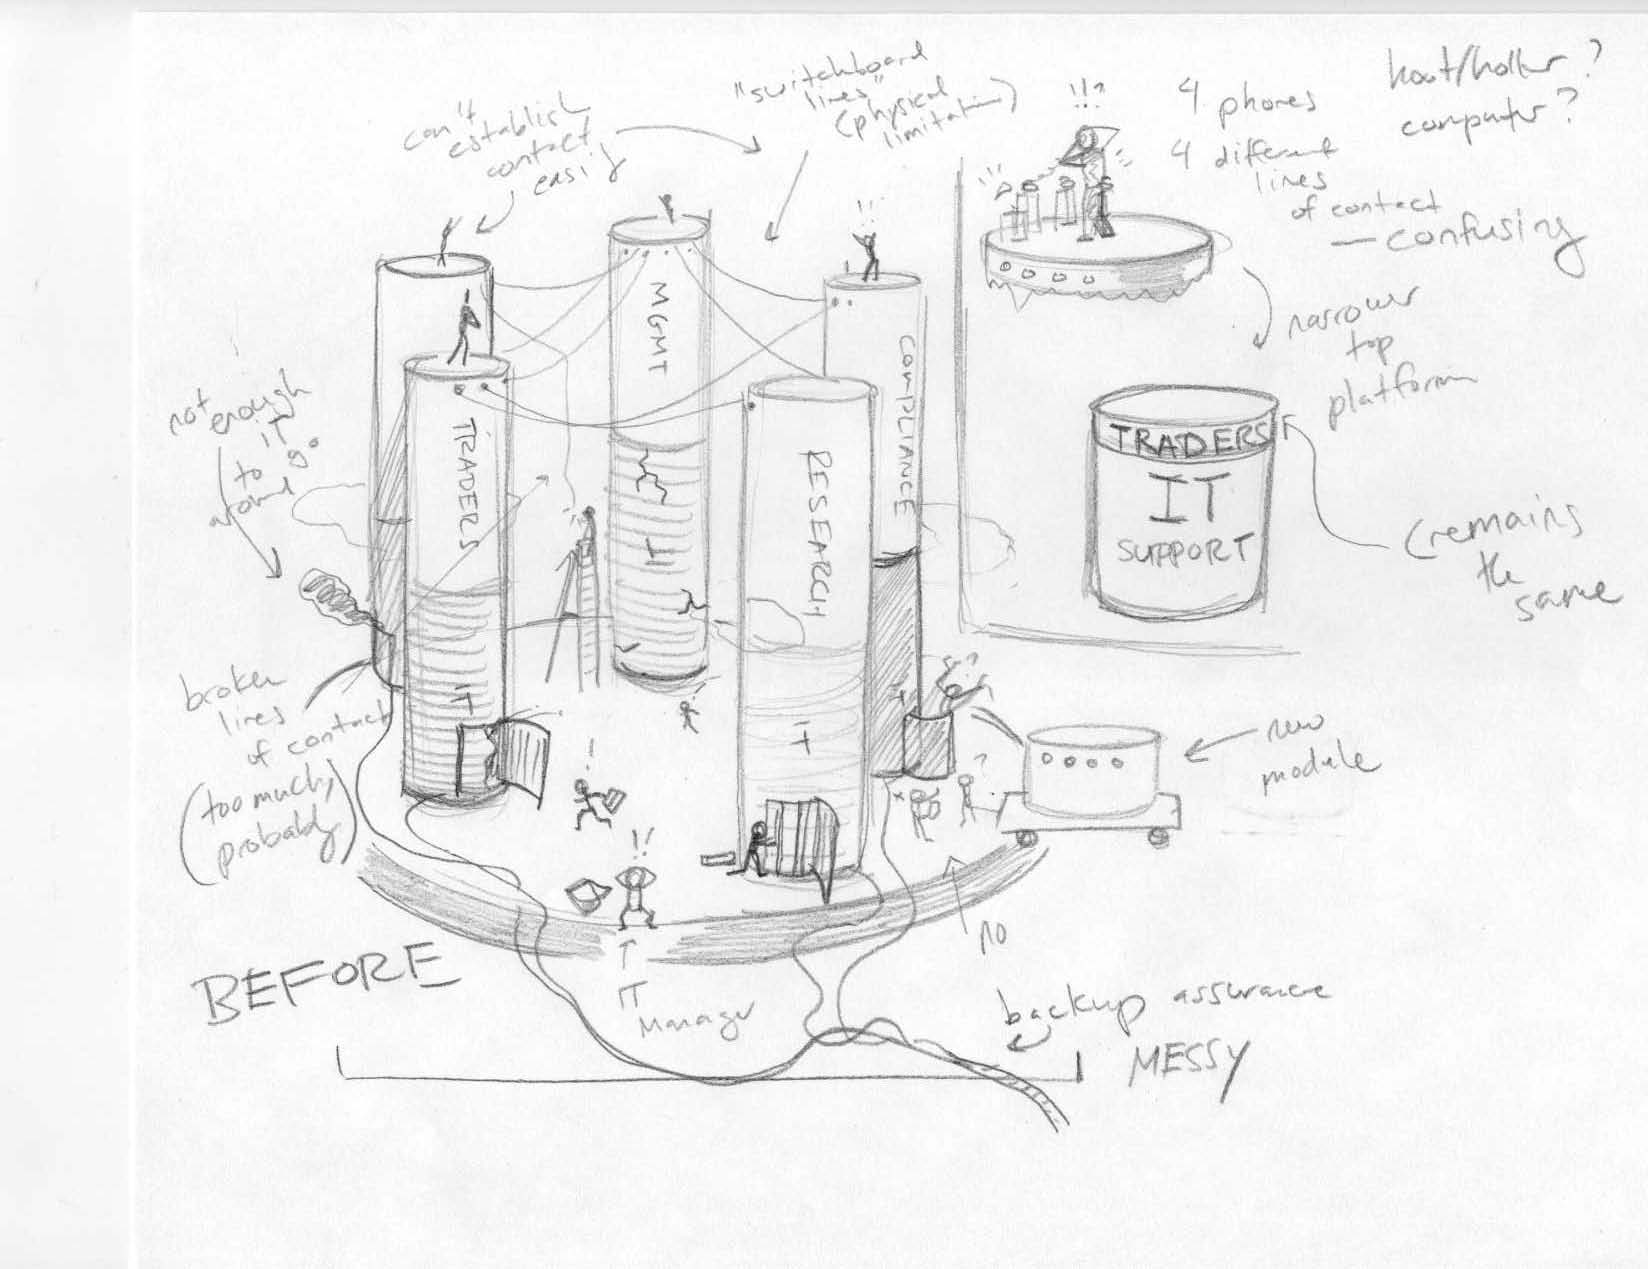 can't
establish
contact
easily
"switchboard
lines"
(physical
limitation)
!!?
4 phones
4 different
lines
of contact
— confusing
hoot/holler?
computer?
!!
!!
narrower
top
platform
TRADERS
IT
SUPPORT
(remains
the
same
not
enough
IT
to go
around
MGMT
IT
COMPLIANCE
IT
TRADERS
IT
RESEARCH
IT
broken
lines
of contact
(too much,
probably)
!
!!
?
?
new
module
no
IT
Manager
BEFORE
backup assurance
MESSY